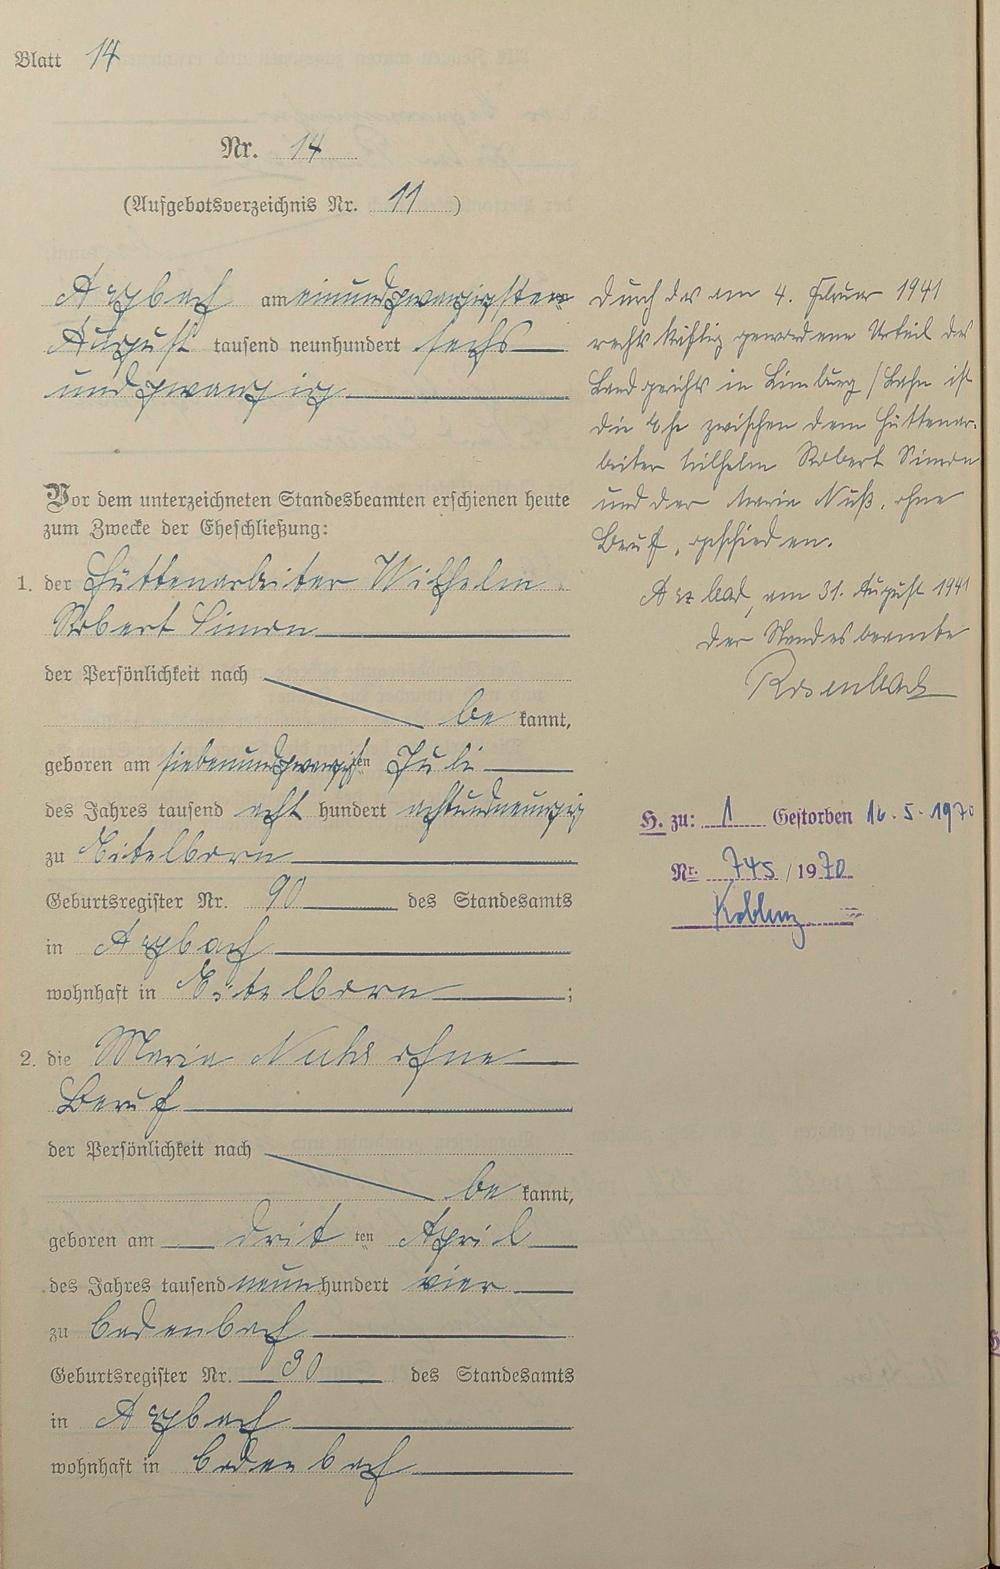 Blatt 14
Nr. 14
(Aufgebotsverzeichnis Nr. 11)
Arzbach am einundzwanzigsten
August tausend neunhundert sechs
undzwanzig
Vor dem unterzeichneten Standesbeamten erschienen heute
zum Zwecke der Eheschließung:
1. der Hüttenarbeiter Wilhelm
Robert Simon
der Persönlichkeit nach
be kannt,
geboren am siebenundzwanzigsten Juli
des Jahres tausend acht hundert achtundneunzig
zu Eitelborn
Geburtsregister Nr. 90 des Standesamts
in Arzbach
wohnhaft in Eitelborn ;
2. die Maria Nuhs ohne
Beruf
der Persönlichkeit nach
be kannt,
geboren am drit ten April
des Jahres tausend neun hundert vier
zu Cadenbach
Geburtsregister Nr. 30 des Standesamts
in Arzbach
wohnhaft in Cadenbach
Durch das am 4. Februar 1941
rechtskräftig gewordene Urteil des
Landgerichts in Limburg/Lahn ist
die Ehe zwischen dem Hüttenar-
beiter Wilhelm Robert Simon
und der Maria Nuß, ohne
Beruf, geschieden.
Arzbach, am 31. August 1941
Der Standesbeamte
Rosenbach
H. zu: 1 Gestorben 16.5.1970
Nr. 745/1970
Koblenz